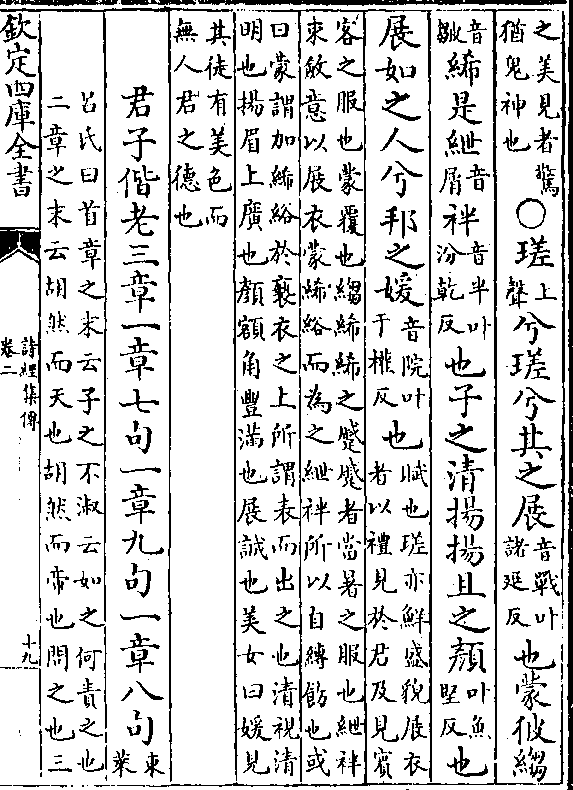 之美見者驚
猶鬼神也
○瑳上聲兮瑳兮其之展音戰叶諸延反也蒙彼縐
音皺絺是紲音屑袢音半叶汾乾反也子之清揚揚且之顏叶魚堅反也
展如之人兮邦之媛音院叶于權反也賦也瑳亦鮮盛貌展衣
者以禮見於君及見賓
客之服也蒙覆也縐絺絺之蹙蹙者當暑之服也紲袢
束敛意以展衣蒙絺綌而為之紲袢所以自縛飭也或
曰蒙謂加絺綌於褻衣之上所謂表而出之也清視清
明也揚眉上廣也顏額角豐滿也展誠也美女曰媛見
其徒有美色而
無人君之德也
君子偕老三章一章七句一章九句一章八句東
萊
呂氏曰首章之末云子之不淑云如之何責之也
二章之末云胡然而天也胡然而帝也問之也三
欽定四庫全書
詩經集傳
卷二
十九